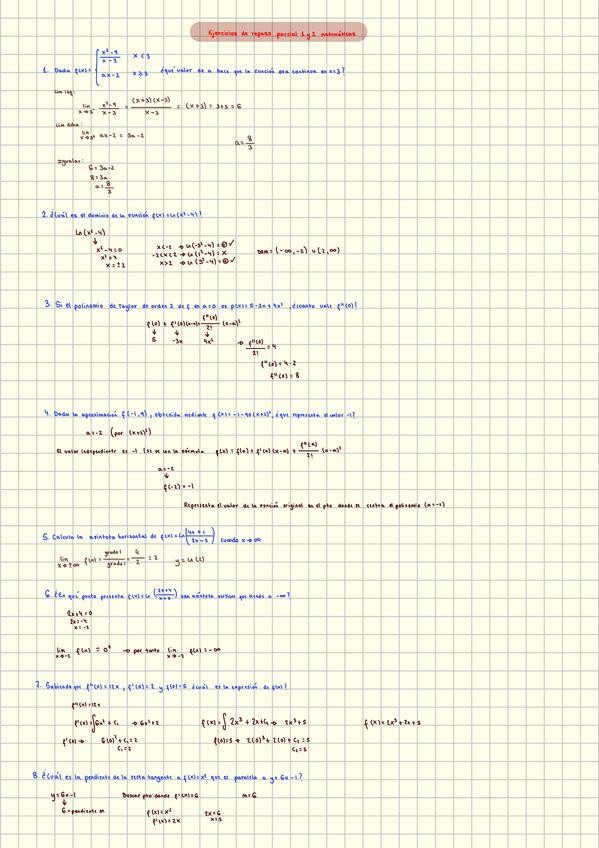 Ejercicios de repaso parcial 1 y 2 matemáticas
1. Dada f(x) = { x²-9 / x-3 x < 3
ax-2 x ≥ 3 ¿qué valor de a hace que la función sea continua en x=3?
Lim izq:
lim x→3⁻ x²-9 / x-3 = (x+3)(x-3) / x-3 = (x+3) = 3+3 = 6
Lim dcha:
lim x→3⁺ ax-2 = 3a-2
a = 8/3
Igualar:
6 = 3a-2
8 = 3a
a = 8/3
2. ¿Cuál es el dominio de la función f(x) = ln(x²-4)?
Ln(x²-4)
↓
x²-4=0
x²=4
x = ±2
x<-2 → Ln(-3²-4) = ⊕ ✓
-2<x<2 → Ln(1²-4) = X
x>2 → Ln(3²-4) = ⊕ ✓
Dom = (-∞,-2) ∪ (2,∞)
3. Si el polinomio de Taylor de orden 2 de f en a=0 es p(x) = 5-3x+4x², ¿cuánto vale f''(0)?
f(0) + f'(0)(x-a) + f''(0)/2! (x-a)²
↓ ↓ ↓
5 -3x 4x²
→ f''(0)/2! = 4
f''(0) = 4·2
f''(0) = 8
4. Dada la aproximación f(-1,9), obtenida mediante
¿qué representa el valor -1?
a=-2 (por (x+2)²)
El valor independiente es -1
la fórmula p(x) = f(a) + f'(a)(x-a) + f''(a)/2! (x-a)²
a=-2
↓
f(-2) = -1
Representa el valor de la función original en el pto donde se centra el polinomio (a=-2)
5. Calcula la asíntota horizontal de f(x) = Ln
cuando x→∞
lim x→±∞ f(x) = grado 1 / grado 1 = 4/2 = 2 y = Ln(2)
6. ¿En qué punto presenta f(x) = Ln
una asíntota vertical que tiende a -∞?
2x+4=0
2x=-4
x=-2
lim x→-2 f(x) = 0⁺ → por tanto lim x→-2 f(x) = -∞
7. Sabiendo que f''(x) = 12x, f'(0) = 2 y f(0) = 5 ¿cuál es la expresión de f(x)?
f''(x) = 12x
f'(x) = ∫ 6x² + C₁ → 6x²+2
f'(0) → 6(0)² + C₁ = 2
C₁ = 2
f(x) = ∫ 2x³ + 2x + C₂ → 2x³+5
f(0) = 5 → 2(0)³ + 2(0) + C₂ = 5
C₂ = 5
f(x) = 2x³ + 2x + 5
8. ¿Cuál es la pendiente de la recta tangente a f(x) = x² que es paralela a y = 6x-1?
y = 6x-1
↓
6 = pendiente m
Buscar pto donde f'(x) = 6
f(x) = x²
f'(x) = 2x
2x = 6
x = 3
m = 6